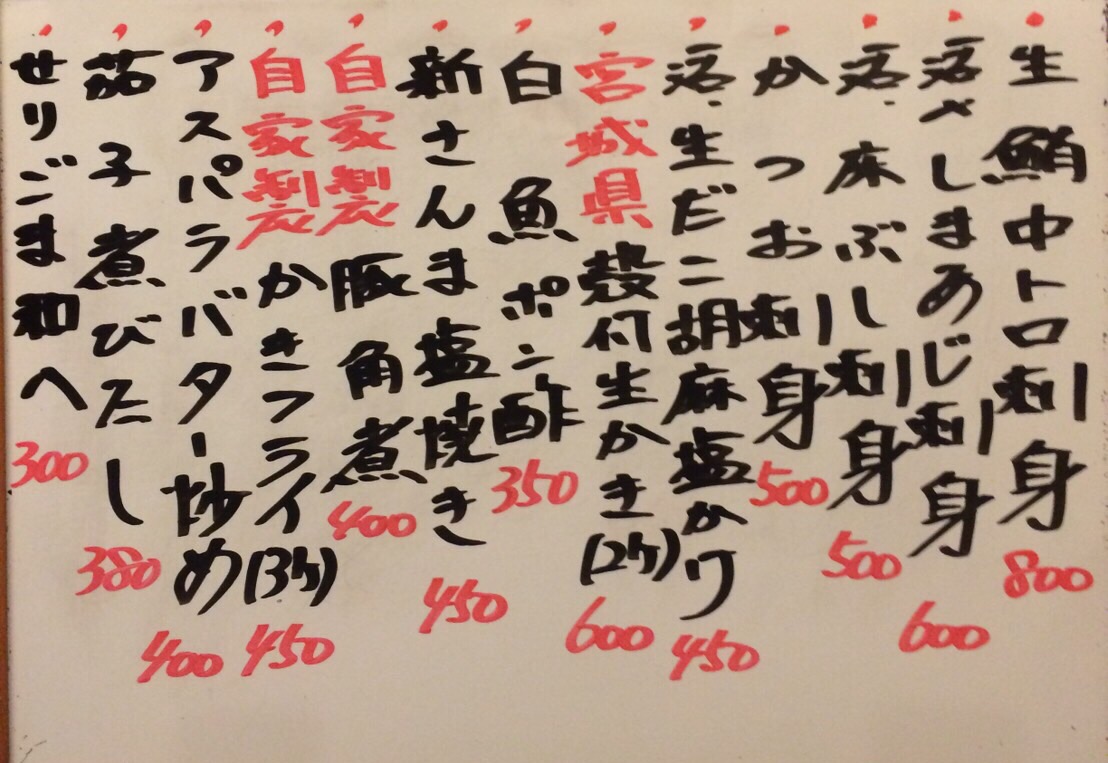 生鮪中トロ刺身 800
活〆しまあじ刺身 600
活.床ぶし刺身 500
かつお刺身 500
活.生だこ胡麻塩かけ 450
宮城県殻付生かき(2ケ) 600
白魚ポン酢 350
新さんま塩焼き 450
自家製豚角煮 400
自家製かきフライ(3ケ) 450
アスパラバター炒め 400
茄子煮びたし 380
せりごま和へ 300